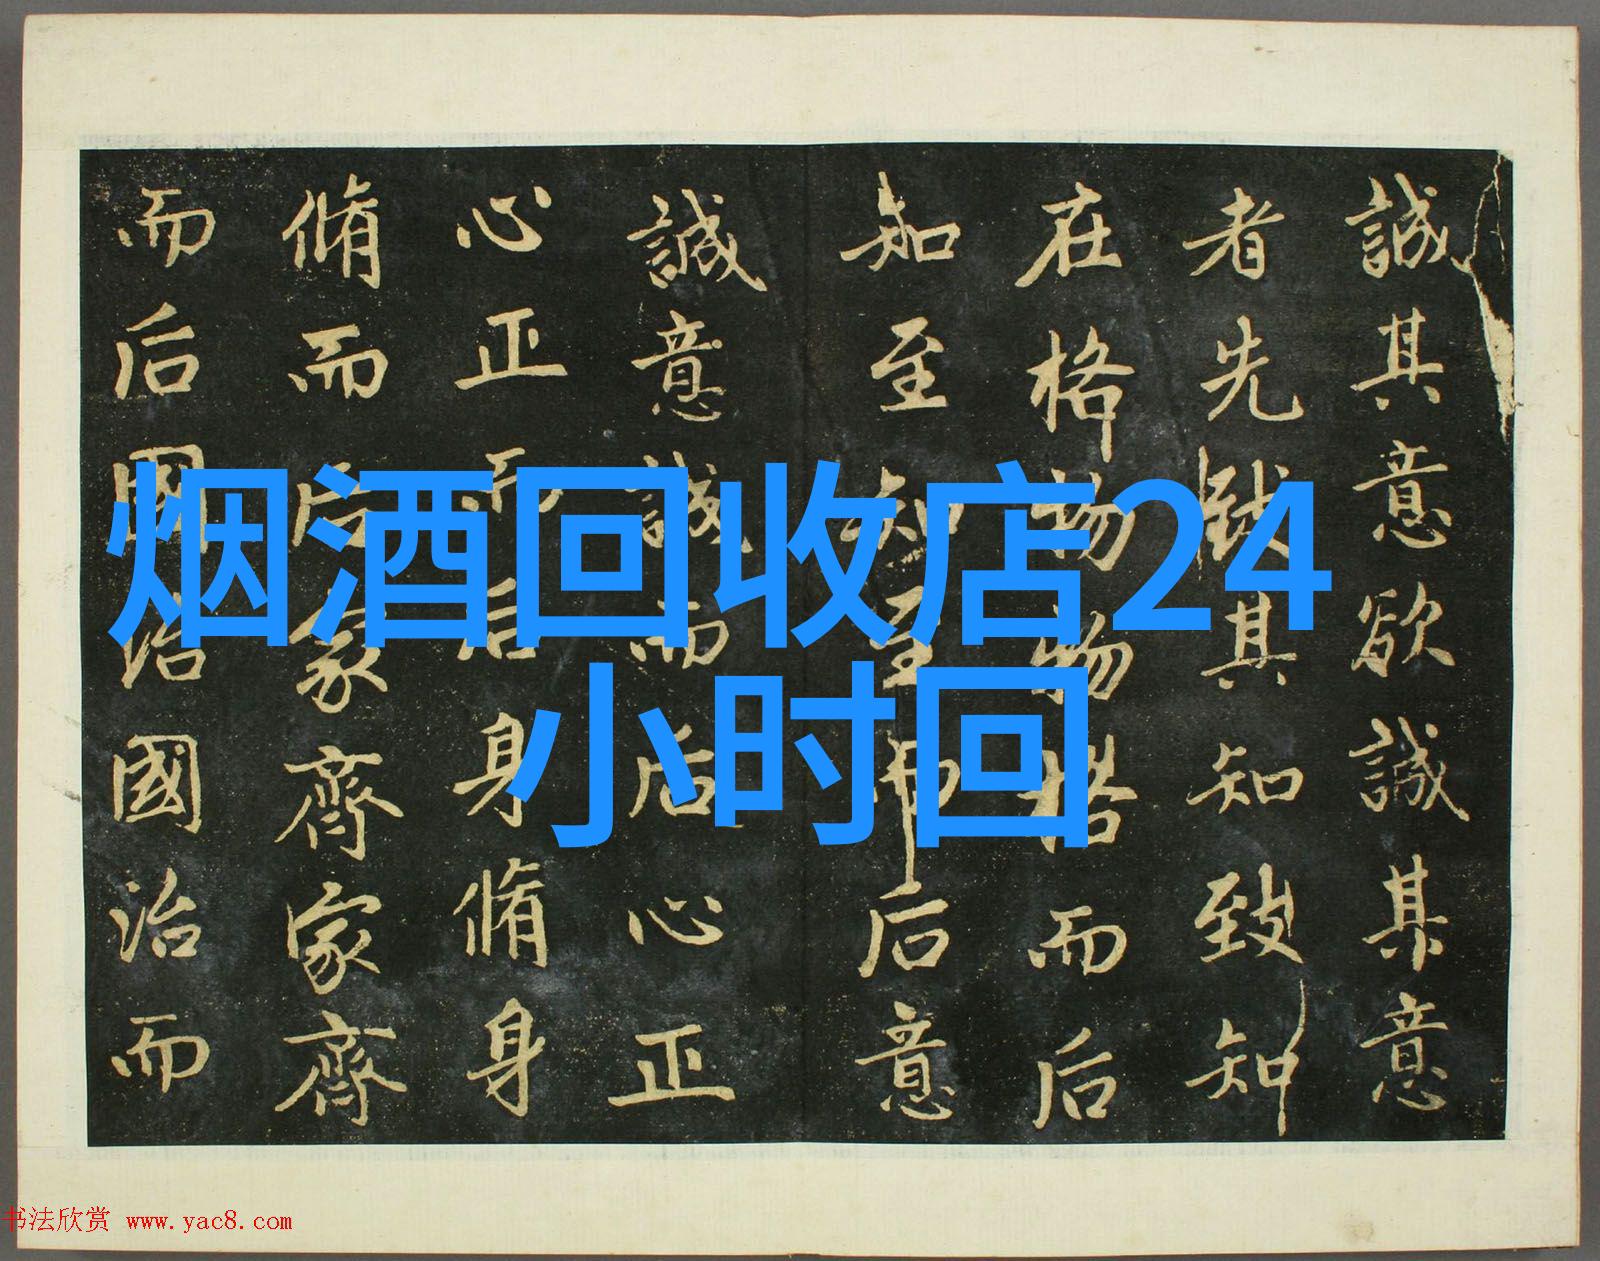 誠其意欲誠其意
者先致其知致知
在格物物格而后
知至知至而后意
誠意誠而后心正
心正而后身脩身
脩而后家齊家齊
而后國治國治而
烟酒回收店24
小时回
书法欣赏 www.yac8.com